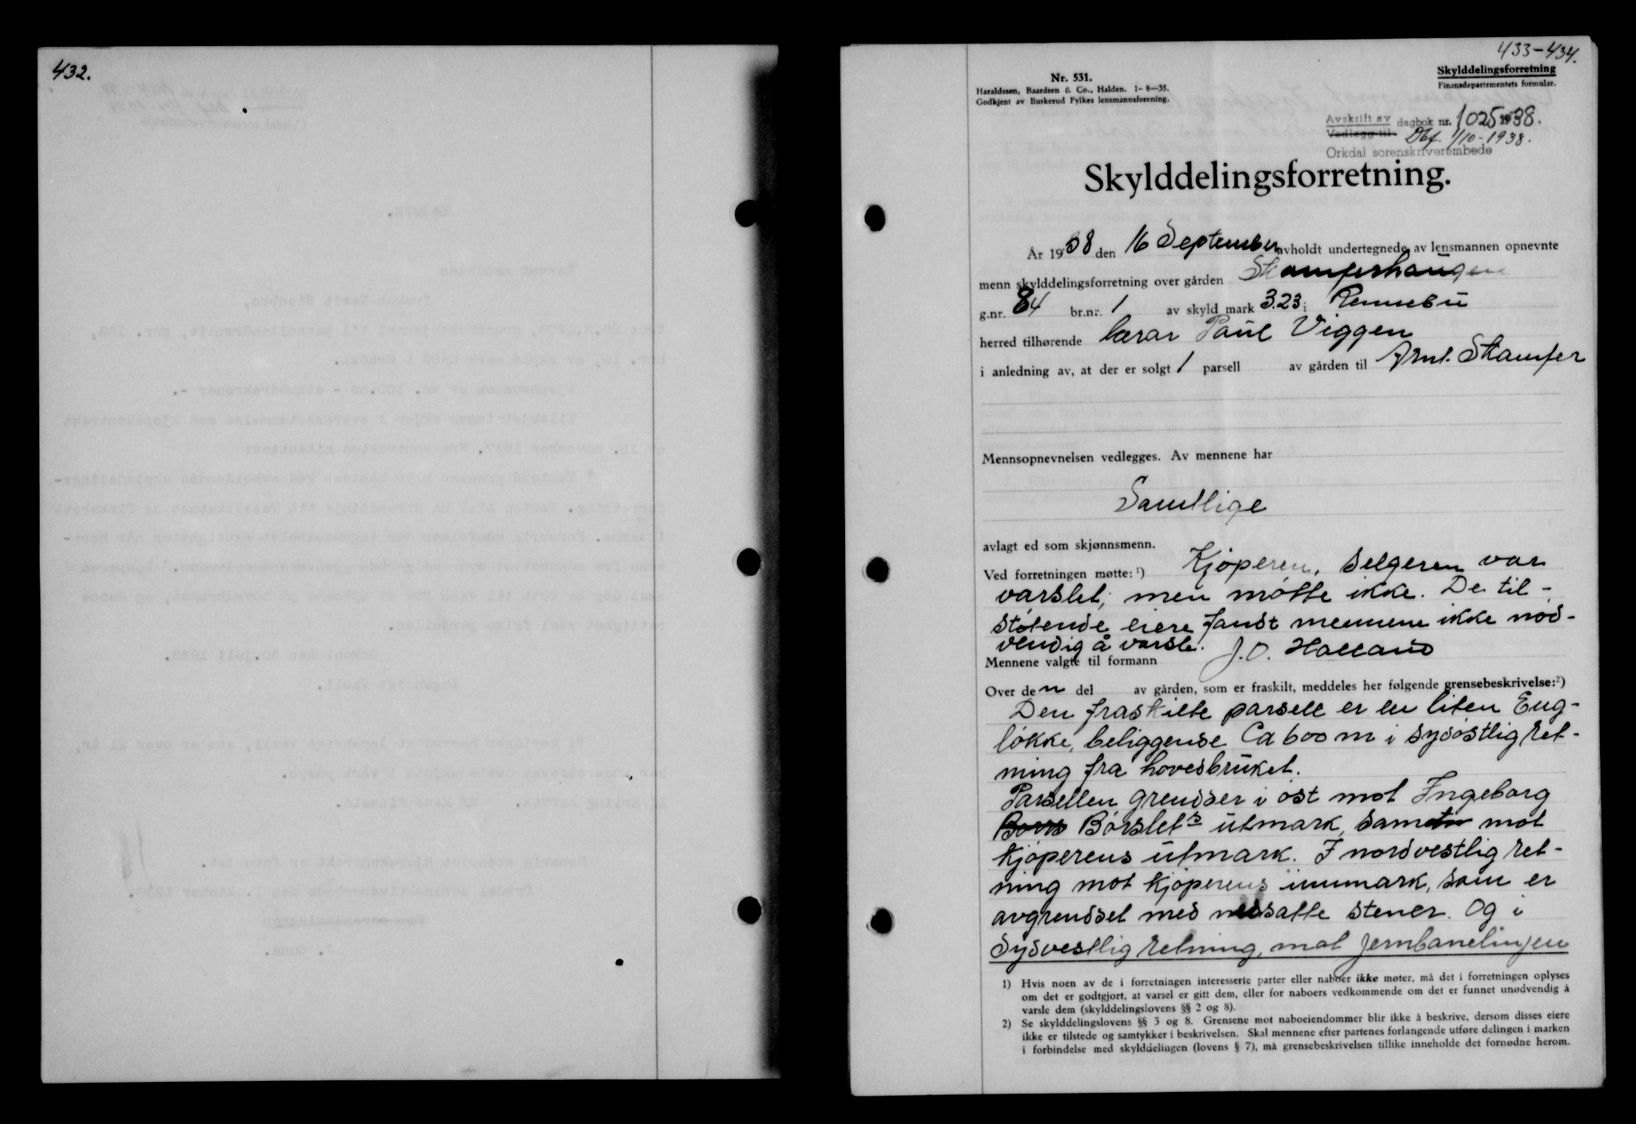 432.
433-434.
Nr. 531.
Haraldssøn, Baardsen & Co., Halden. 1-8-35.
Godkjent av Buskerud Fylkes lensmannsforening.
Skylddelingsforretning
Finansdepartementets formular.
Avskrift av dagbok nr. 1025 1938.
Vedlegg til Dbf. 1/10-1938.
Orkdal sorenskriverembede
Skylddelingsforretning.
År 1938 den 16 September avholdt undertegnede av lensmannen opnevnte
menn skylddelingsforretning over gården Stamfershaugen
g.nr. 84 br.nr. 1 av skyld mark 3.23 i Rennebu
herred tilhørende lærar Paul Viggen
i anledning av, at der er solgt 1 parsell av gården til Arnt. Stamfer
Mennsopnevnelsen vedlegges. Av mennene har
Samtlige
avlagt ed som skjønnsmenn.
Ved forretningen møtte: ¹) Kjøperen, selgeren var
varslet, men møtte ikke. De til-
støtende eiere fandt mennene ikke nød-
vendig å varsle.
Mennene valgte til formann J.O. Halland
Over den del av gården, som er fraskilt, meddeles her følgende grensebeskrivelse:²)
Den fraskilte parsell er en liten Eng-
løkke, beliggende Ca 600 m i sydøstlig ret-
ning fra hovedbruket.
Parsellen grendser i øst mot Ingeborg
Børs Børslets utmark, samt mot
kjøperens utmark. I nordvestlig ret-
ning mot kjøperens innmark, som er
avgrendset med nedsatte stener. Og i
Sydvestlig retning, mot jernbanelinjen
1) Hvis noen av de i forretningen interesserte parter eller naboer ikke møter, må det i forretningen oplyses
om det er godtgjort, at varsel er gitt dem, eller for naboers vedkommende om det er funnet unødvendig å
varsle dem (skylddelingslovens §§ 2 og 8).
2) Se skylddelingslovens §§ 3 og 8. Grensene mot naboeiendommer blir ikke å beskrive, dersom disses eiere
ikke er tilstede og samtykker i beskrivelsen. Skal mennene efter partenes forlangende utføre delingen i marken
i forbindelse med skylddelingen (lovens § 7), må grensebeskrivelsen tillike inneholde det fornødne herom.